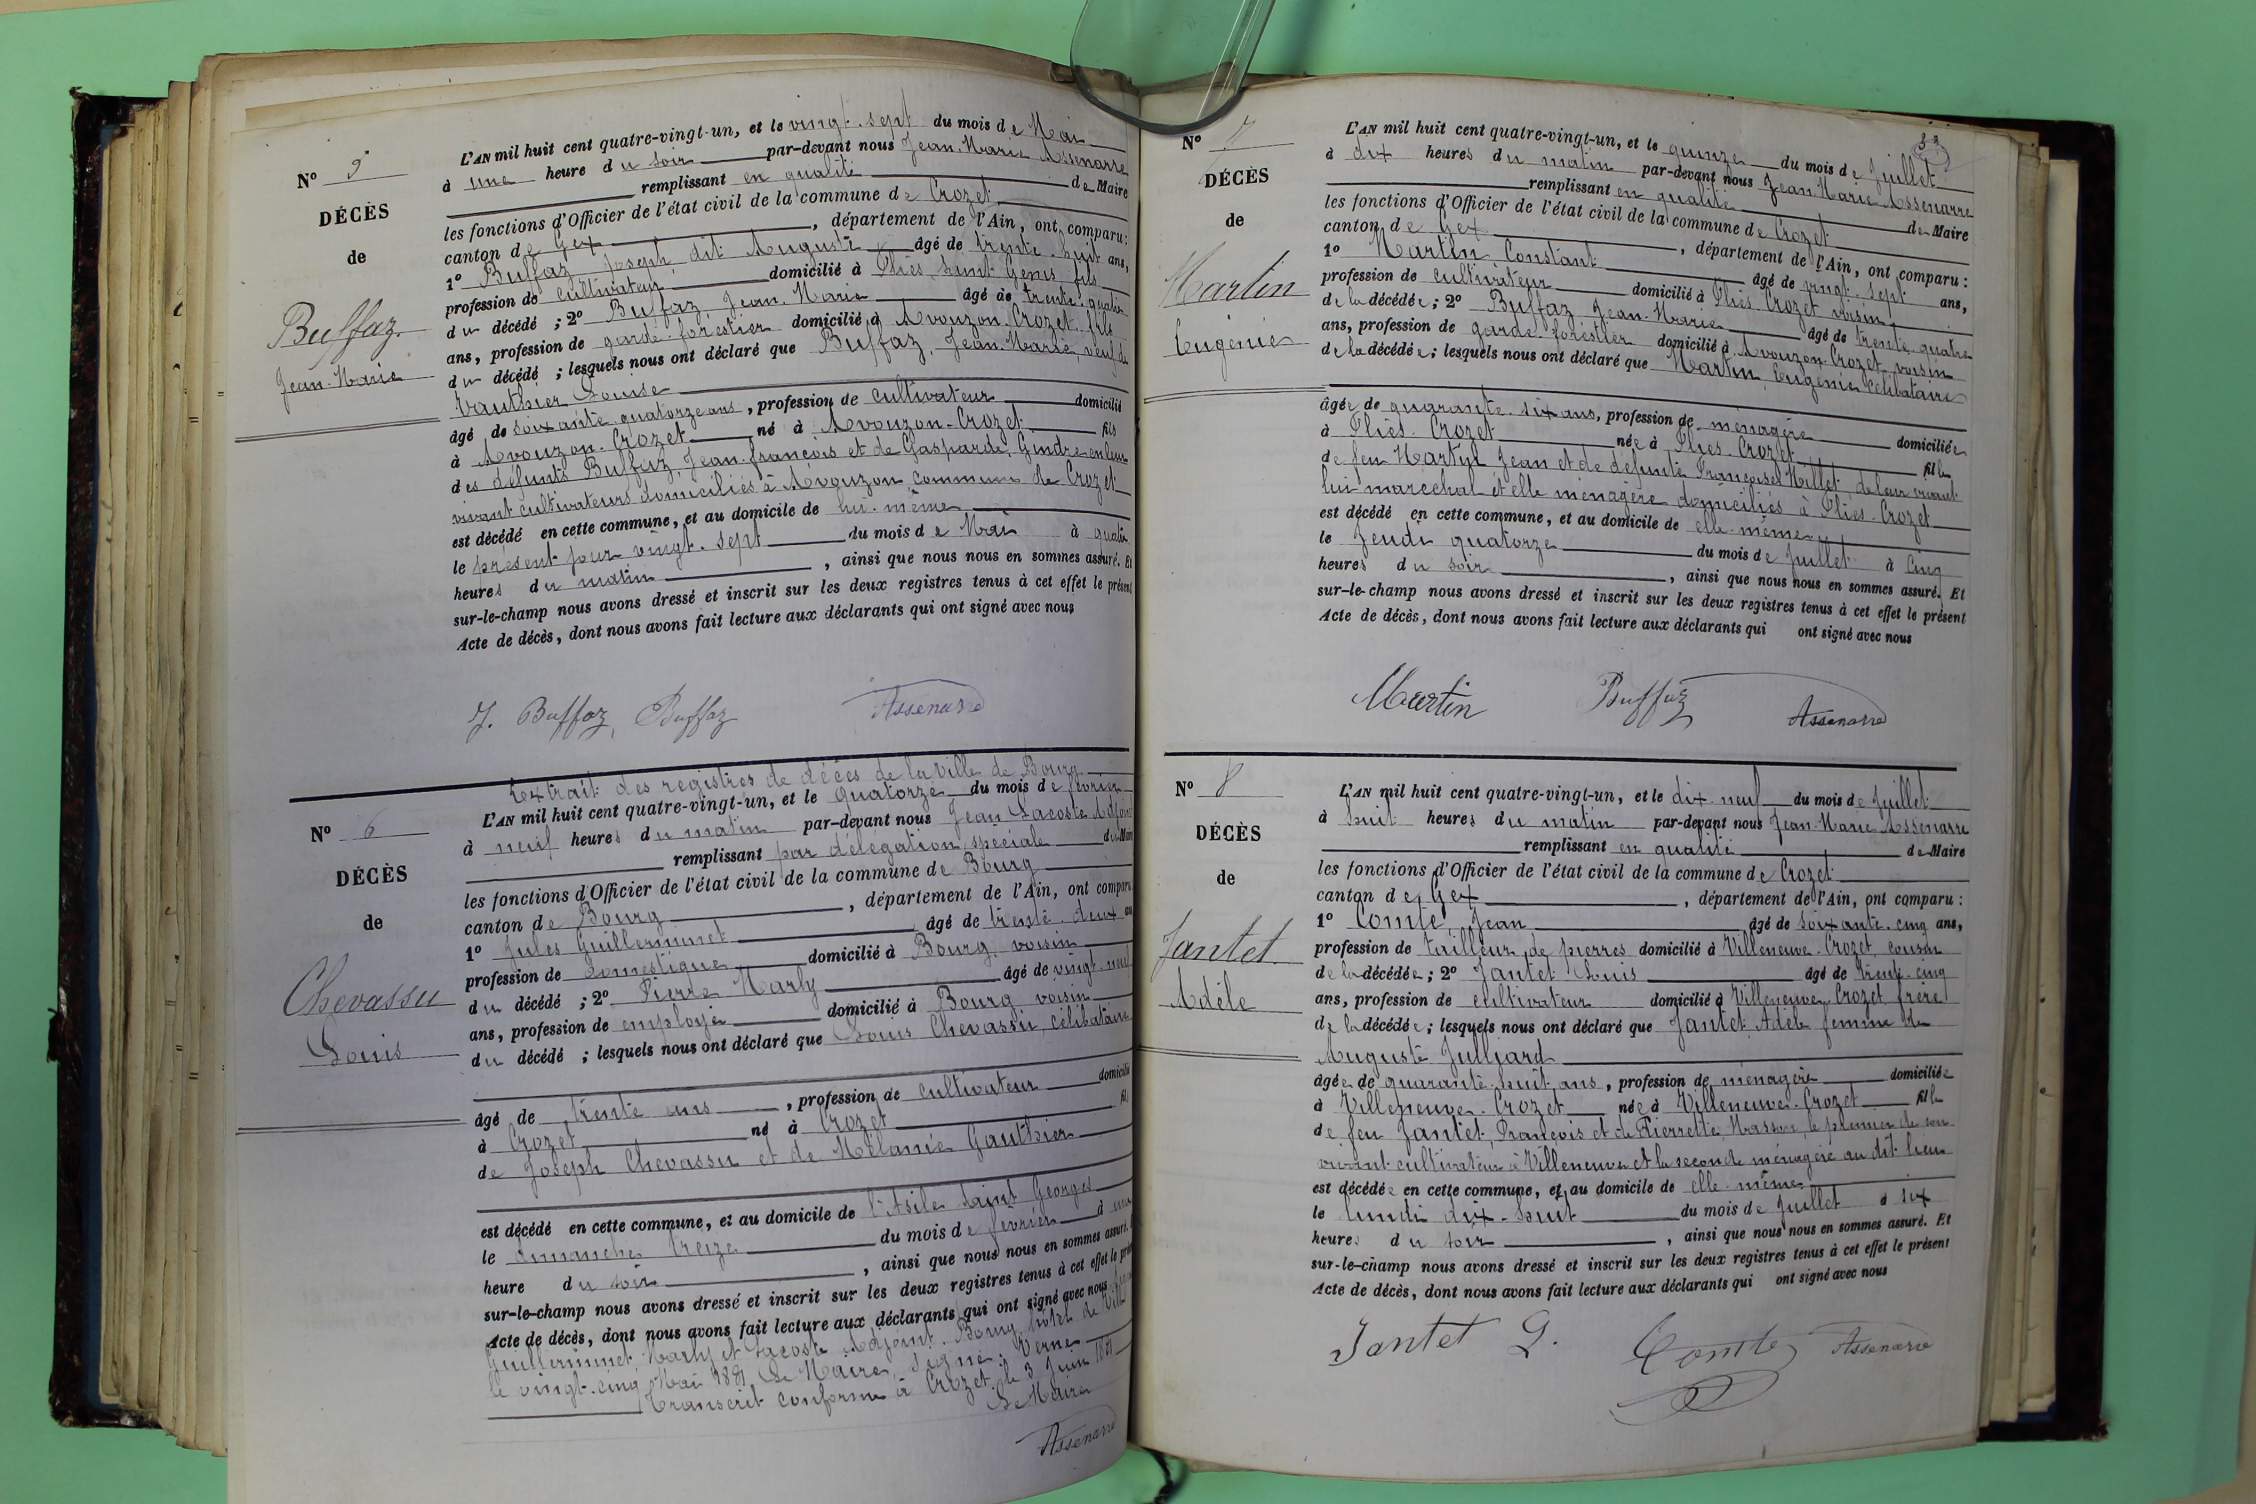 N° 5
DÉCÈS
de
Buffaz
Jean-Marie
L'AN mil huit cent quatre-vingt-un, et le vingt-sept du mois de Mai
à une heure du soir par-devant nous Jean-Marie Assenarre
remplissant en qualité de Maire
les fonctions d'Officier de l'état civil de la commune de Crozet
canton de Gex, département de l'Ain, ont comparu:
1° Buffaz Joseph dit Auguste âgé de trente-huit ans,
profession de cultivateur domicilié à Fliès, Saint-Genis fils
du décédé ; 2° Buffaz Jean-Marie âgé de trente-quatre
ans, profession de garde-forestier domicilié à Avouzon-Crozet, fils
du décédé ; lesquels nous ont déclaré que Buffaz, Jean-Marie veuf de
Vauthier Louise
âgé de soixante-quatorze ans, profession de cultivateur domicilié
à Avouzon-Crozet né à Avouzon-Crozet fils
des défunts Buffaz, Jean-françois et de Gasparde, Gindre en leur
vivant cultivateurs domiciliés à Avouzon commune de Crozet
est décédé en cette commune, et au domicile de lui-même
le présent jour vingt-sept du mois de Mai à quatre
heures du matin, ainsi que nous nous en sommes assuré. Et
sur-le-champ nous avons dressé et inscrit sur les deux registres tenus à cet effet le présent
Acte de décès, dont nous avons fait lecture aux déclarants qui ont signé avec nous
J. Buffaz, Buffaz Assenarre
N° 6
DÉCÈS
de
Chevassu
Louis
Extrait des registres de décès de la Ville de Bourg
L'AN mil huit cent quatre-vingt-un, et le quatorze du mois de février
à neuf heures du matin par-devant nous Jean Lacoste Adjoint
remplissant par délégation spéciale de Maire
les fonctions d'Officier de l'état civil de la commune de Bourg
canton de Bourg, département de l'Ain, ont comparu
1° Jules Guillerminet âgé de trente-deux ans
profession de domestique domicilié à Bourg, voisin
du décédé ; 2° Pierre Marly âgé de vingt-neuf
ans, profession de employé domicilié à Bourg voisin
du décédé ; lesquels nous ont déclaré que Louis Chevassu, célibataire
âgé de trente ans, profession de cultivateur domicilié
à Crozet né à Crozet fils
de Joseph Chevassu et de Mélanie Gauthier
est décédé en cette commune, et au domicile de l'Asile Saint Georges
le dimanche treize du mois de février à une
heure du soir, ainsi que nous nous en sommes assuré.
sur-le-champ nous avons dressé et inscrit sur les deux registres tenus à cet effet le présent
Acte de décès, dont nous avons fait lecture aux déclarants qui ont signé avec nous
Guillerminet, Marly et Lacoste Adjoint. Bourg, hôtel de Ville
le vingt-cinq Mai 1881. Le Maire, Signé: Verne
Transcrit conforme à Crozet, le 3 Juin 1881
Le Maire
Assenarre
N° 7
DÉCÈS
de
Martin
Eugénie
L'AN mil huit cent quatre-vingt-un, et le quinze du mois de Juillet
à dix heures du matin par-devant nous Jean-Marie Assenarre
remplissant en qualité de Maire
les fonctions d'Officier de l'état civil de la commune de Crozet
canton de Gex, département de l'Ain, ont comparu :
1° Martin Constant âgé de vingt-sept ans,
profession de cultivateur domicilié à Fliès-Crozet voisin
de la décédée ; 2° Buffaz Jean-Marie âgé de trente-quatre
ans, profession de garde-forestier domicilié à Avouzon-Crozet voisin
de la décédée ; lesquels nous ont déclaré que Martin Eugénie célibataire
âgée de quarante-six ans, profession de ménagère domiciliée
à Fliès-Crozet née à Fliès-Crozet fille
de feu Martin Jean et de défunte Françoise Millet, de leur vivant
lui maréchal et elle ménagère domiciliés à Fliès-Crozet
est décédé en cette commune, et au domicile de elle-même
le Jeudi quatorze du mois de Juillet à cinq
heures du soir, ainsi que nous nous en sommes assuré. Et
sur-le-champ nous avons dressé et inscrit sur les deux registres tenus à cet effet le présent
Acte de décès, dont nous avons fait lecture aux déclarants qui ont signé avec nous
Martin Buffaz Assenarre
N° 8
DÉCÈS
de
Jantet
Adèle
L'AN mil huit cent quatre-vingt-un, et le dix-neuf du mois de Juillet
à huit heures du matin par-devant nous Jean-Marie Assenarre
remplissant en qualité de Maire
les fonctions d'Officier de l'état civil de la commune de Crozet
canton de Gex, département de l'Ain, ont comparu :
1° Comte, Jean âgé de soixante-cinq ans,
profession de tailleur de pierres domicilié à Villeneuve-Crozet, cousin
de la décédée ; 2° Jantet Louis âgé de trente-cinq
ans, profession de cultivateur domicilié à Villeneuve-Crozet frère
de la décédée ; lesquels nous ont déclaré que Jantet Adèle femme de
Auguste Julliard
âgée de quarante-huit ans, profession de ménagère domiciliée
à Villeneuve-Crozet née à Villeneuve-Crozet fille
de feu Jantet, François et de Pierrette Masson, le premier de son
vivant cultivateur à Villeneuve et la seconde ménagère au dit lieu
est décédée en cette commune, et au domicile de elle-même
le lundi dix-huit du mois de Juillet à six
heures du soir, ainsi que nous nous en sommes assuré. Et
sur-le-champ nous avons dressé et inscrit sur les deux registres tenus à cet effet le présent
Acte de décès, dont nous avons fait lecture aux déclarants qui ont signé avec nous
Jantet L. Comte Assenarre